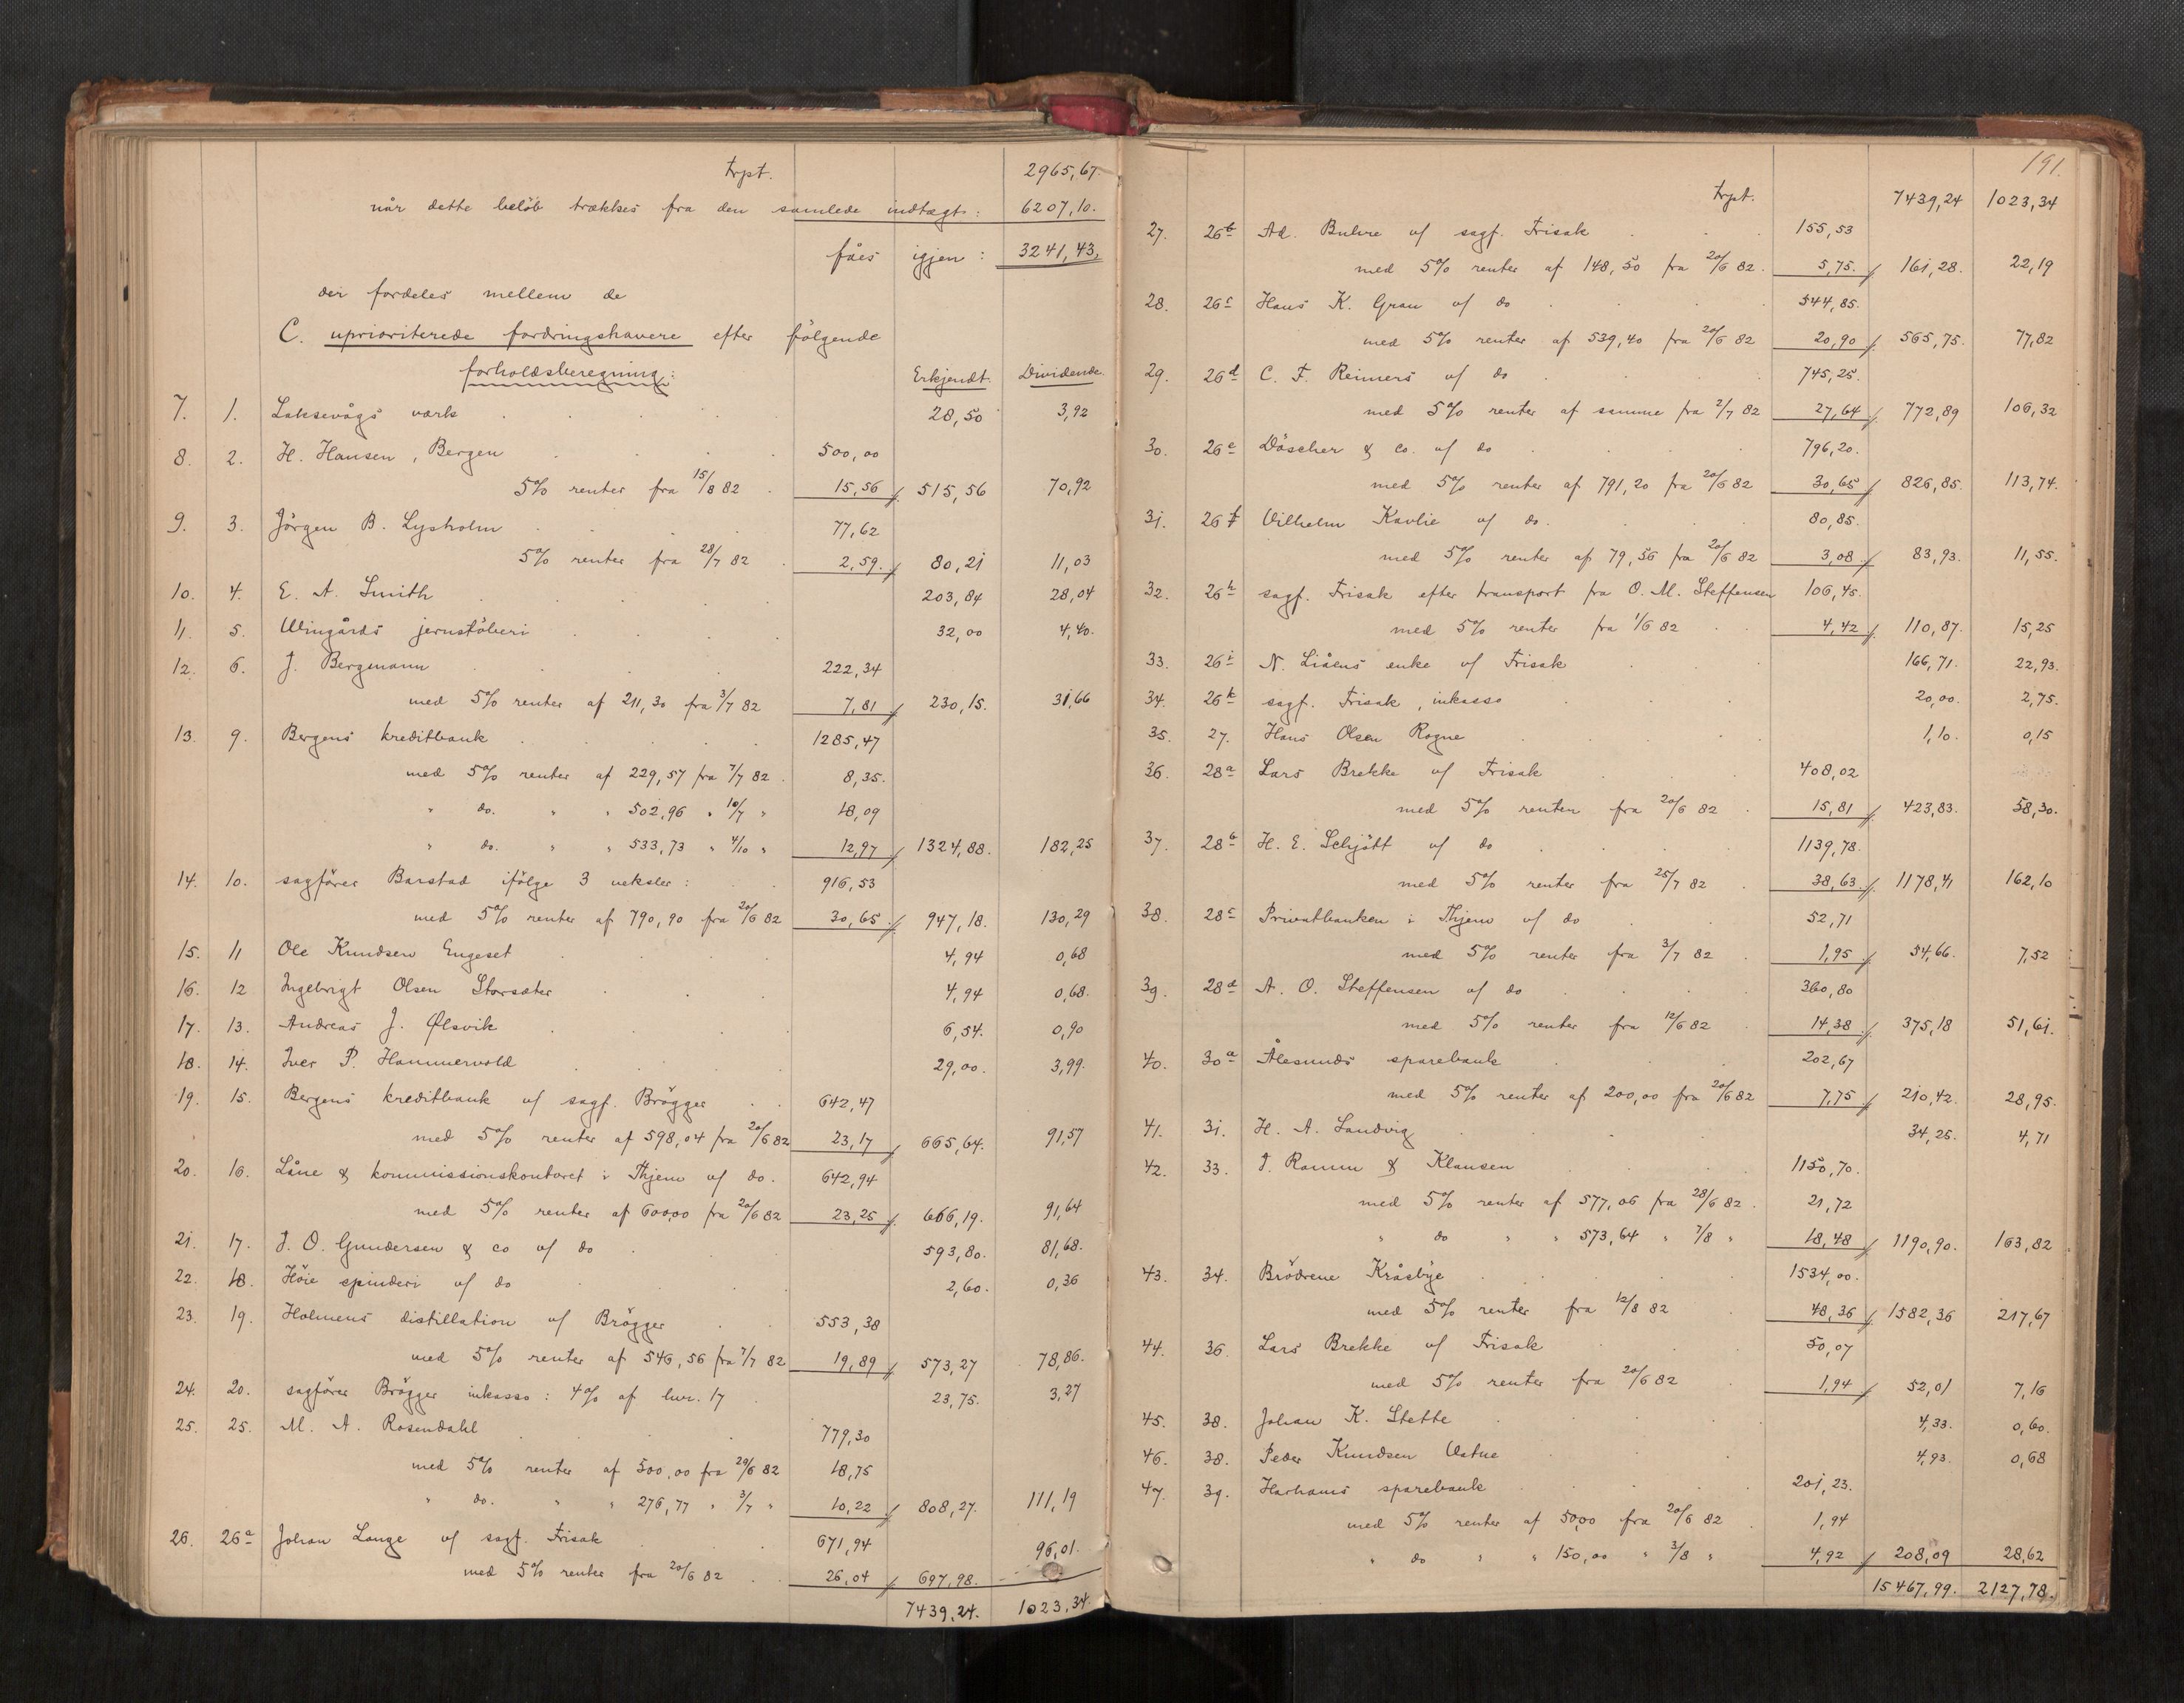 trpt. 2965,67.
når dette beløb trækkes fra den samlede indtægt: 6207,10.
fåes igjen: 3241,43.
der fordeles mellem de
C. uprioriterede fordringshavere efter følgende
forholdsberegning:
Erkjendt. Dividende.
7. 1. Laksevågs værk 28,50 3,92
8. 2. H. Hansen, Bergen 500,00
5% renter fra 15/8 82 15,56 515,56 70,92
9. 3. Jörgen B. Lysholm 77,62
5% renter fra 28/7 82 2,59 80,21 11,03
10. 4. E. A. Smith 203,84 28,04
11. 5. Wingårds jernstöberi 32,00 4,40.
12. 6. J. Bergmann 222,34
med 5% renter af 211,30 fra 3/7 82 7,81 230,15. 31,66
13. 9. Bergens kreditbank 1285,47
med 5% renter af 229,57 fra 7/7 82 8,35.
" do. " " 502,96 " 10/7 " 18,09
" do. " " 533,73 " 4/10 " 12,97 1324,88. 182,25
14. 10. sagfører Barstad ifölge 3 veksler: 916,53
med 5% renter af 790,90 fra 20/6 82 30,65 947,18. 130,29
15. 11 Ole Knudsen Engeset 4,94 0,68
16. 12 Ingebrigt Olsen Storsæter 4,94 0,68.
17. 13. Andreas J. Ølsvik 6,54. 0,90
18. 14. Iver P. Hammervold 29,00. 3,99.
19. 15. Bergens kreditbank v/ sagf. Brögger 642,47
med 5% renter af 598,04 fra 20/6 82 23,17 665,64. 91,57
20. 16. Låne & kommissionskontoret i Thjem v/ do. 642,94
med 5% renter af 600,00 fra 20/6 82 23,25 666,19. 91,64
21. 17. J. O. Gundersen & co v/ do 593,80. 81,68.
22. 18. Höie spinderi v/ do 2,60. 0,36
23. 19. Holmens distillation v/ Brögger 553,38
med 5% renter af 546,56 fra 7/7 82 19,89 573,27 78,86.
24. 20. sagfører Brögger inkasso: 4% af lnr. 17 23,75. 3,27
25. 25. M. A. Rosendahl 779,30
med 5% renter af 500,00 fra 20/6 82 18,75
" do. " " 276,77 " 3/7 " 10,22 808,27. 111,19
26. 26a Johan Lange v/ sagf. Frisak 671,94 96,01.
med 5% renter fra 20/6 82 26,04 697,98.
7439,24. 1023,34.
191.
trpt. 7439,24 1023,34
27. 26b Ad. Buhre v/ sagf. Frisak 155,53
med 5% renter af 148,50 fra 20/6 82. 5,75. 161,28. 22,19
28. 26c Hans K. Gran v/ do 544,85.
med 5% renter af 539,40 fra 20/6 82 20,90 565,75. 77,82
29. 26d C. F. Reimers v/ do 745,25.
med 5% renter af samme fra 2/7 82 27,64 772,89 106,32
30. 26e Döscher & co. v/ do 796,20.
med 5% renter af 791,20 fra 20/6 82 30,65 826,85. 113,74.
31. 26f Vilhelm Kavlie v/ do. 80,85.
med 5% renter af 79,56 fra 20/6 82 3,08 83,93. 11,55.
32. 26h sagf. Frisak efter transport fra O. M. Steffensen 106,45.
med 5% renter fra 1/6 82 4,42 110,87. 15,25
33. 26i N. Liåens enke v/ Frisak 166,71. 22,93.
34. 26k sagf. Frisak, inkasso 20,00. 2,75.
35. 27. Hans Olsen Rogne 1,10. 0,15
36. 28a Lars Brekke v/ Frisak 408,02
med 5% renter fra 20/6 82 15,81 423,83. 58,30.
37. 28b H. E. Schjött v/ do 1139,78.
med 5% renter fra 25/7 82 38,63 1178,41 162,10
38. 28c Privatbanken i Thjem v/ do 52,71
med 5% renter fra 3/7 82 1,95 54,66. 7,52
39. 28d A. O. Steffensen v/ do 360,80
med 5% renter fra 12/6 82 14,38 375,18 51,61.
40. 30a Ålesunds sparebank 202,67
med 5% renter af 200,00 fra 20/6 82 7,75 210,42. 28,95.
41. 31. H. A. Landvig 34,25. 4,71
42. 33. J. Ramm & Klausen 1150,70.
med 5% renter af 577,06 fra 28/6 82. 21,72
" do " " 573,64 " 7/8 " 18,48 1190,90. 163,82
43. 34. Brödrene Kråsbye 1534,00.
med 5% renter fra 12/8 82 48,36 1582,36 217,67
44. 36. Lars Brekke v/ Frisak 50,07
med 5% renter fra 20/6 82 1,94 52,01 7,16
45. 38. Johan K. Stette 4,33. 0,60.
46. 38. Peder Knudsen Vatne 4,93. 0,68
47. 39. Harhams sparebank 201,23.
med 5% renter af 50,00 fra 20/6 82 1,94
" do " " 150,00 " 3/8 " 4,92 208,09 28,62
15467,99. 2127,78.